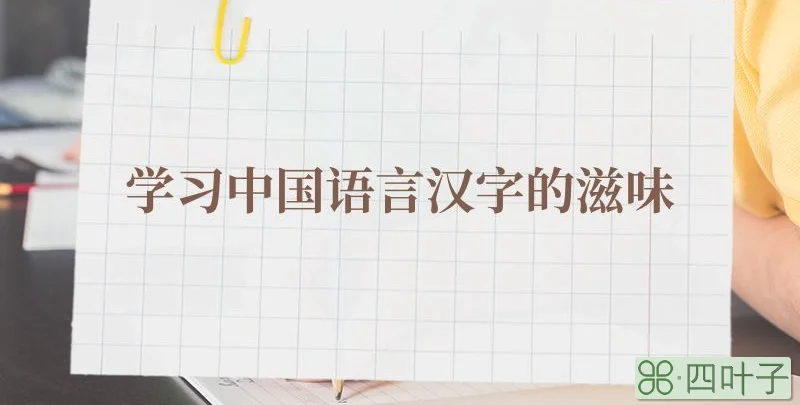 学习中国语言汉字的滋味
四叶子